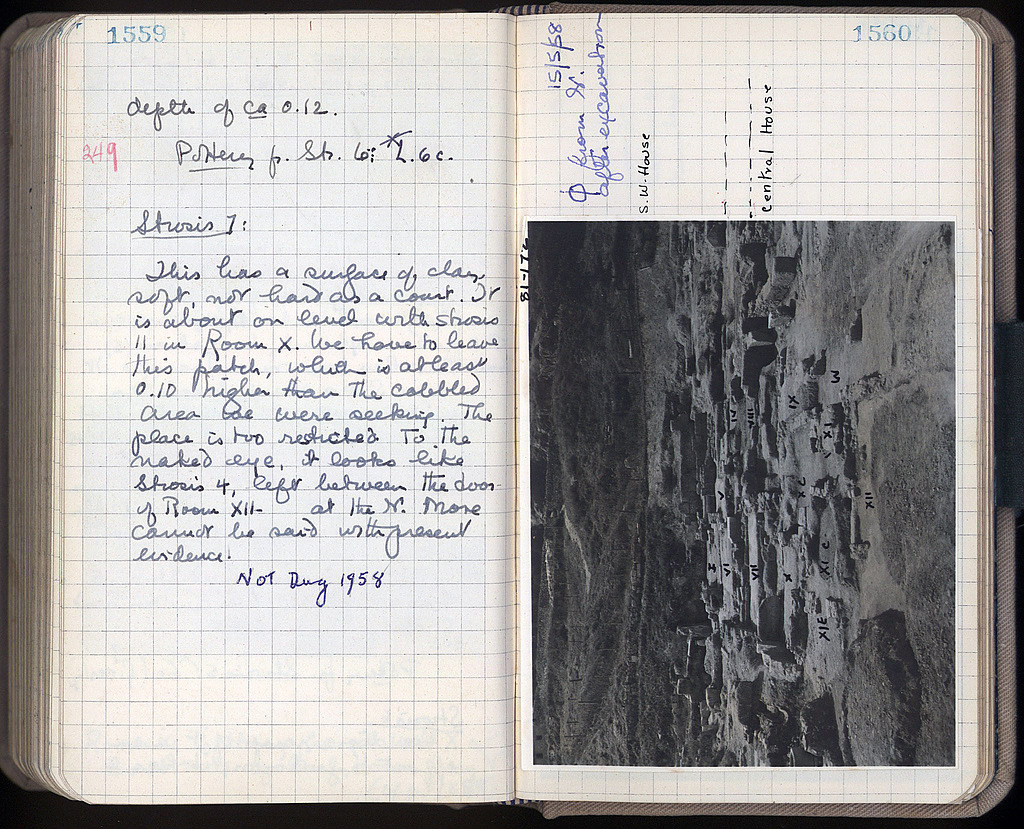 1559
depth of ca 0.12.
249
Pottery p. Str. 6: *L. 6c.
Strosis 7:
This has a surface of clay,
soft, not hard as a court. It
is about on level with strosis
11 in Room X. We have to leave
this patch, which is at least
0.10 higher than the cobbled
area we were seeking. The
place is too restricted. To the
naked eye, it looks like
Strosis 4, left between the door
of Room XII- at the N. More
cannot be said with present
evidence.
Not Dug 1958
1560
15/5/58
Φ from N.
after excavation
S.W. House
Central House
81-176
IV
VIII
IX
M
XI
V
X
XII
I
VI
VII
X
XI C
XI E